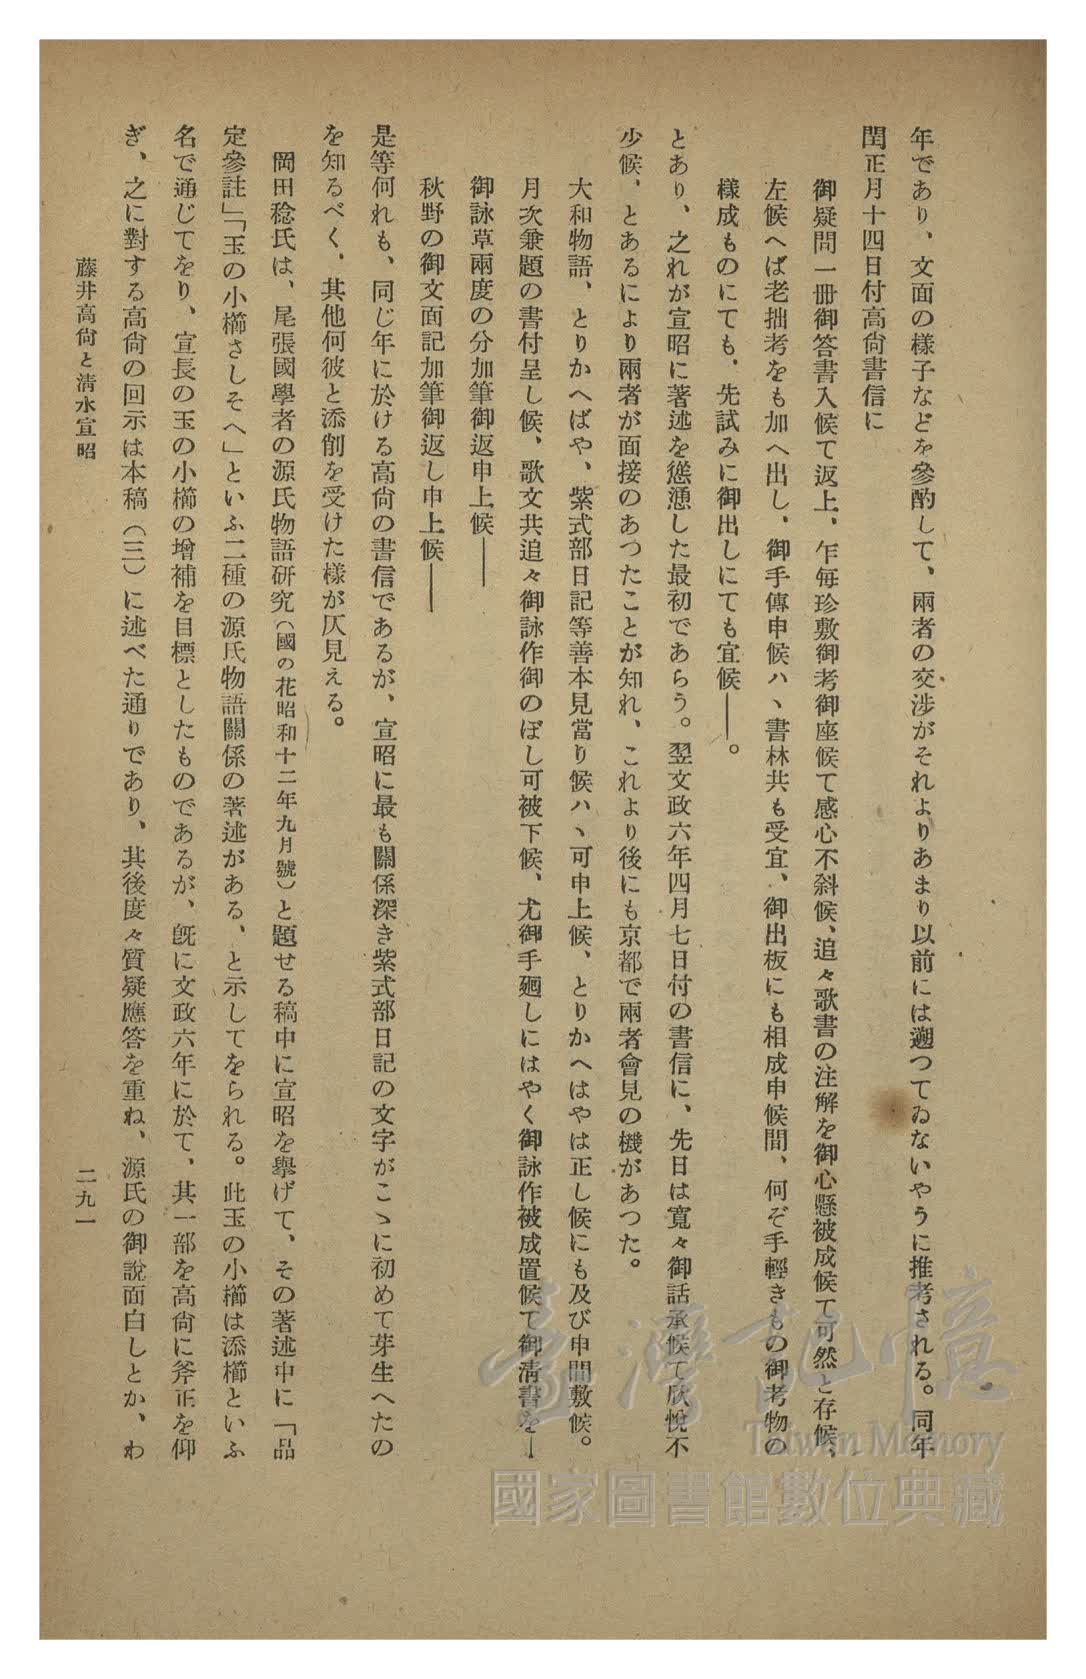 年であり、文面の樣子などを參酌して、兩者の交渉がそれよりあまり以前には遡つてゐないやうに推考される。同年
閏正月十四日付高尙書信に
御疑問一册御答書入候て返上、乍每珍敷御考御座候て感心不斜候、追々歌書の注解を御心懸被成候て可然と存候、
左候へば老拙考をも加へ出し、御手傳申候ハヽ書林共も受宜、御出板にも相成申候間、何ぞ手輕きもの御考物の
樣成ものにても、先試みに御出しにても宜候――。
とあり、之れが宣昭に著述を慫慂した最初であらう。翌文政六年四月七日付の書信に、先日は寬々御話承候て欣悅不
少候、とあるにより兩者が面接のあつたことが知れ、これより後にも京都で兩者會見の機があつた。
大和物語、とりかへばや、紫式部日記等善本見當り候ハヽ可申上候、とりかへはやは正し候にも及び申間敷候。
月次兼題の書付呈し候、歌文共追々御詠作御のぼし可被下候、尤御手廻しにはやく御詠作被成置候て御淸書を―
御詠草兩度の分加筆御返申上候――
秋野の御文面記加筆御返し申上候――
是等何れも、同じ年に於ける高尙の書信であるが、宣昭に最も關係深き紫式部日記の文字がこゝに初めて芽生へたの
を知るべく、其他何彼と添削を受けた樣が仄見える。
岡田稔氏は、尾張國學者の源氏物語硏究（國の花昭和十二年九月號）と題せる稿中に宣昭を擧げて、その著述中に「品
定參註」「玉の小櫛さしそへ」といふ二種の源氏物語關係の著述がある、と示してをられる。此玉の小櫛は添櫛といふ
名で通じてをり、宣長の玉の小櫛の增補を目標としたものであるが、旣に文政六年に於て、其一部を高尙に斧正を仰
ぎ、之に對する高尙の回示は本稿（三）に述べた通りであり、其後度々質疑應答を重ね、源氏の御說面白しとか、わ
藤井高尙と淸水宣昭
二九一
臺灣記憶
Taiwan Memory
國家圖書館數位典藏